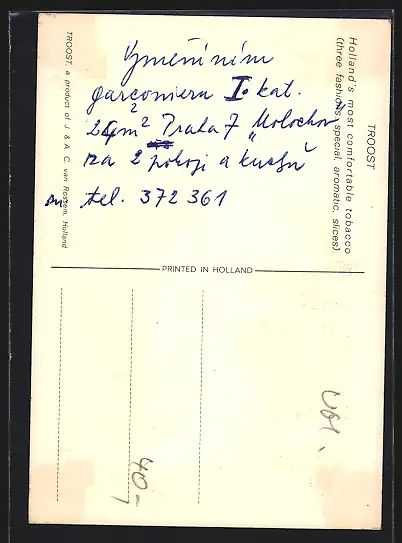 Vyměním
garconieru I. kat.
24m² Praha 7 „Molochov"
za 2 pokoji a kuchyň
tel. 372 361
TROOST
Holland's most comfortable tobacco
(three fashions special, aromatic, slices).
TROOST, a product of J. & A. C. van Rossem, Holland
PRINTED IN HOLLAND
40,-